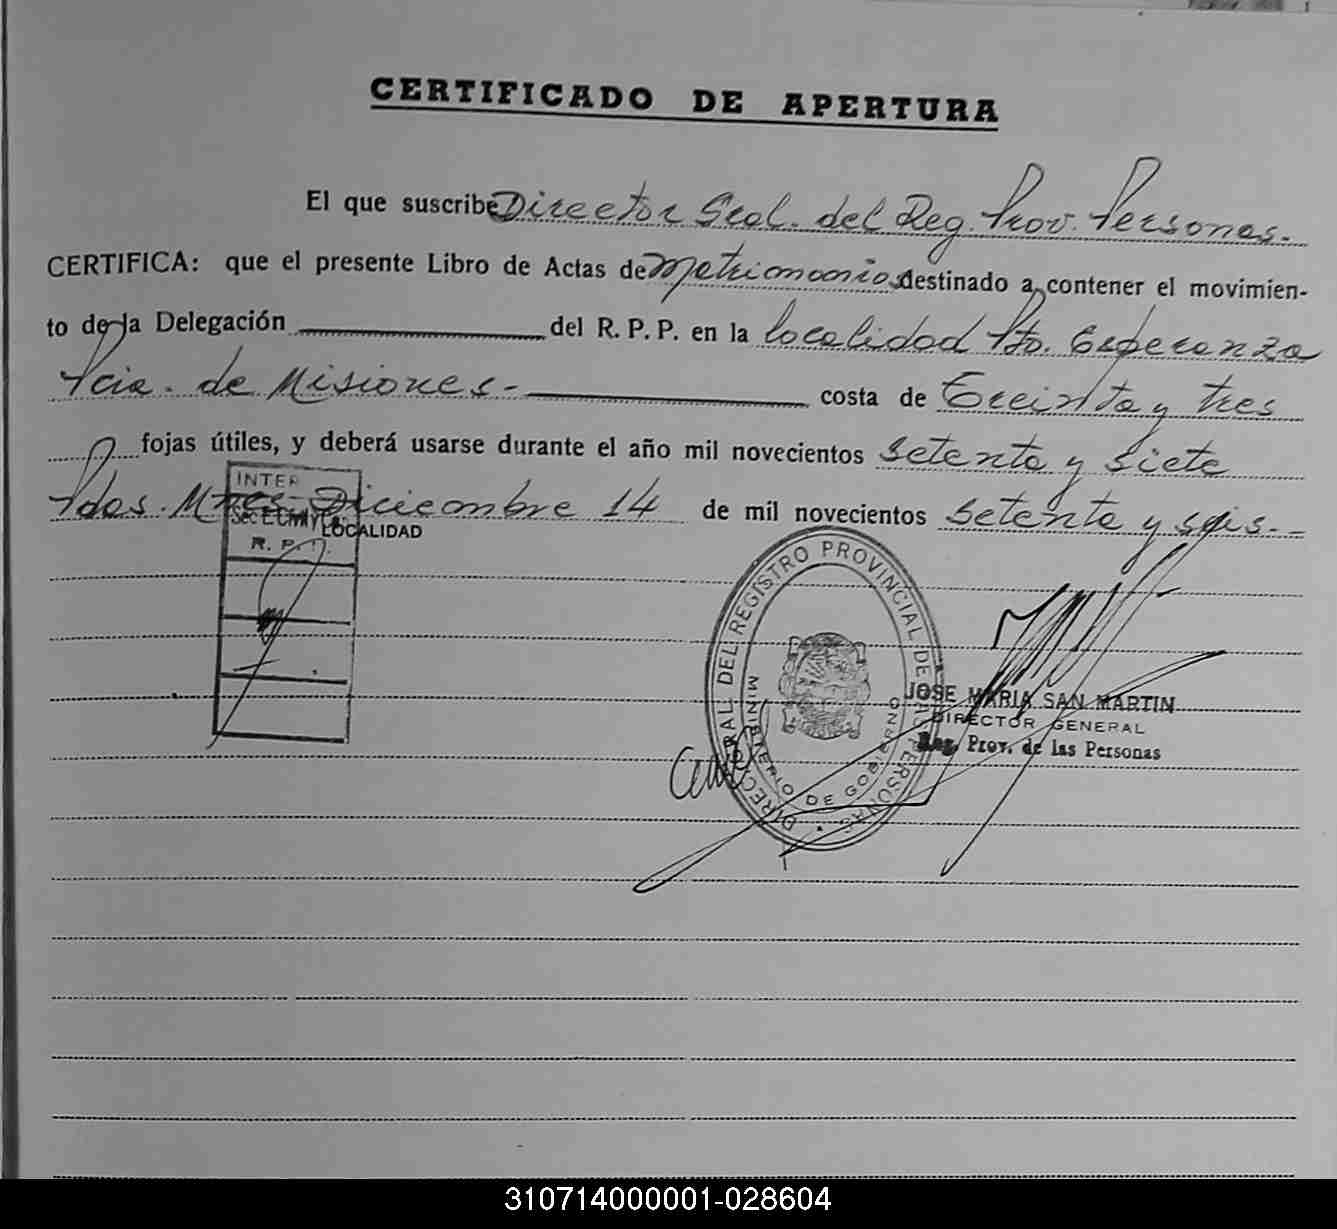 CERTIFICADO DE APERTURA
El que suscribe Director Gral. del Reg. Prov. Personas.
CERTIFICA: que el presente Libro de Actas de Matrimonios destinado a contener el movimien-
to de la Delegación del R. P. P. en la localidad Pto. Esperanza
Pcia. de Misiones.- costa de Treinta y tres
fojas útiles, y deberá usarse durante el año mil novecientos Setenta y Siete
Pdas. Mnes. Diciembre 14 de mil novecientos Setenta y seis.-
LOCALIDAD
INTER
R. P.
DIRECC RAL DEL REGISTRO PROVINCIAL DE LAS PERSONAS
MINISTERIO DE GOBIERNO
JOSE MARIA SAN MARTIN
DIRECTOR GENERAL
Reg. Prov. de las Personas
310714000001-028604